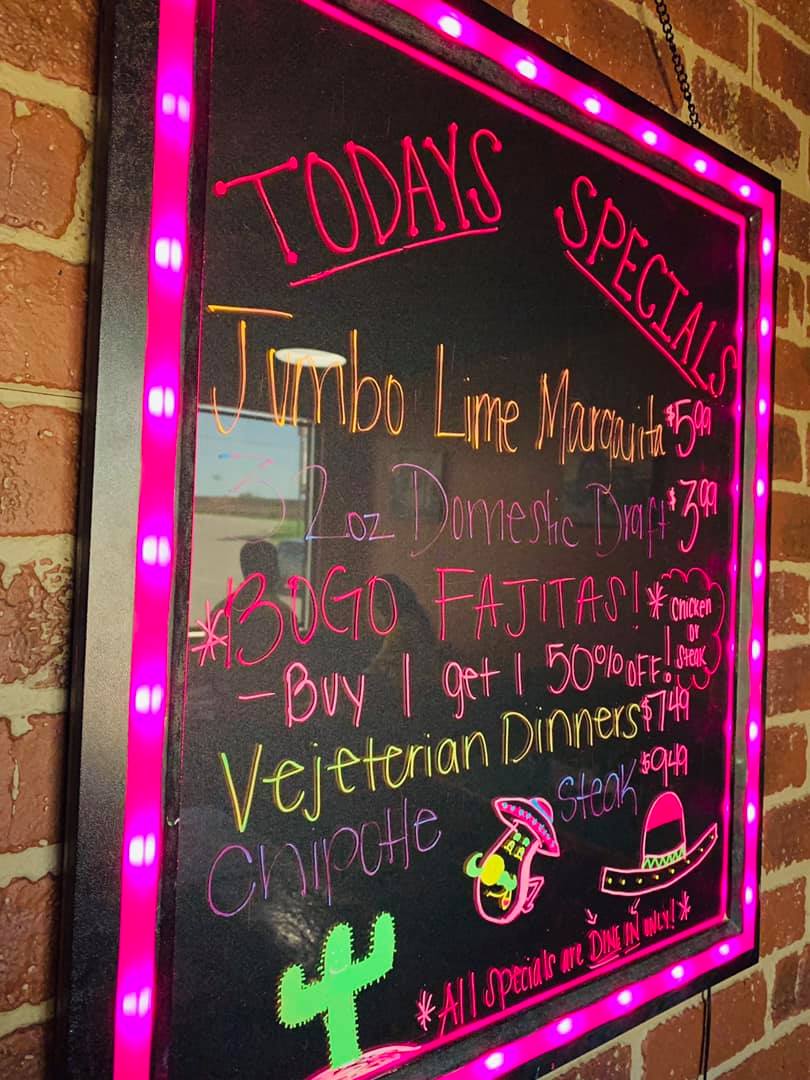 TODAYS SPECIALS
Jumbo Lime Margarita $5.99
32oz Domestic Draft $3.99
*BOGO FAJITAS!* Chicken or Steak
- Buy 1 get 1 50% OFF!
Vejeterian Dinners $7.49
Chipotle Steak $9.49
*All Specials are DINE IN ONLY!*